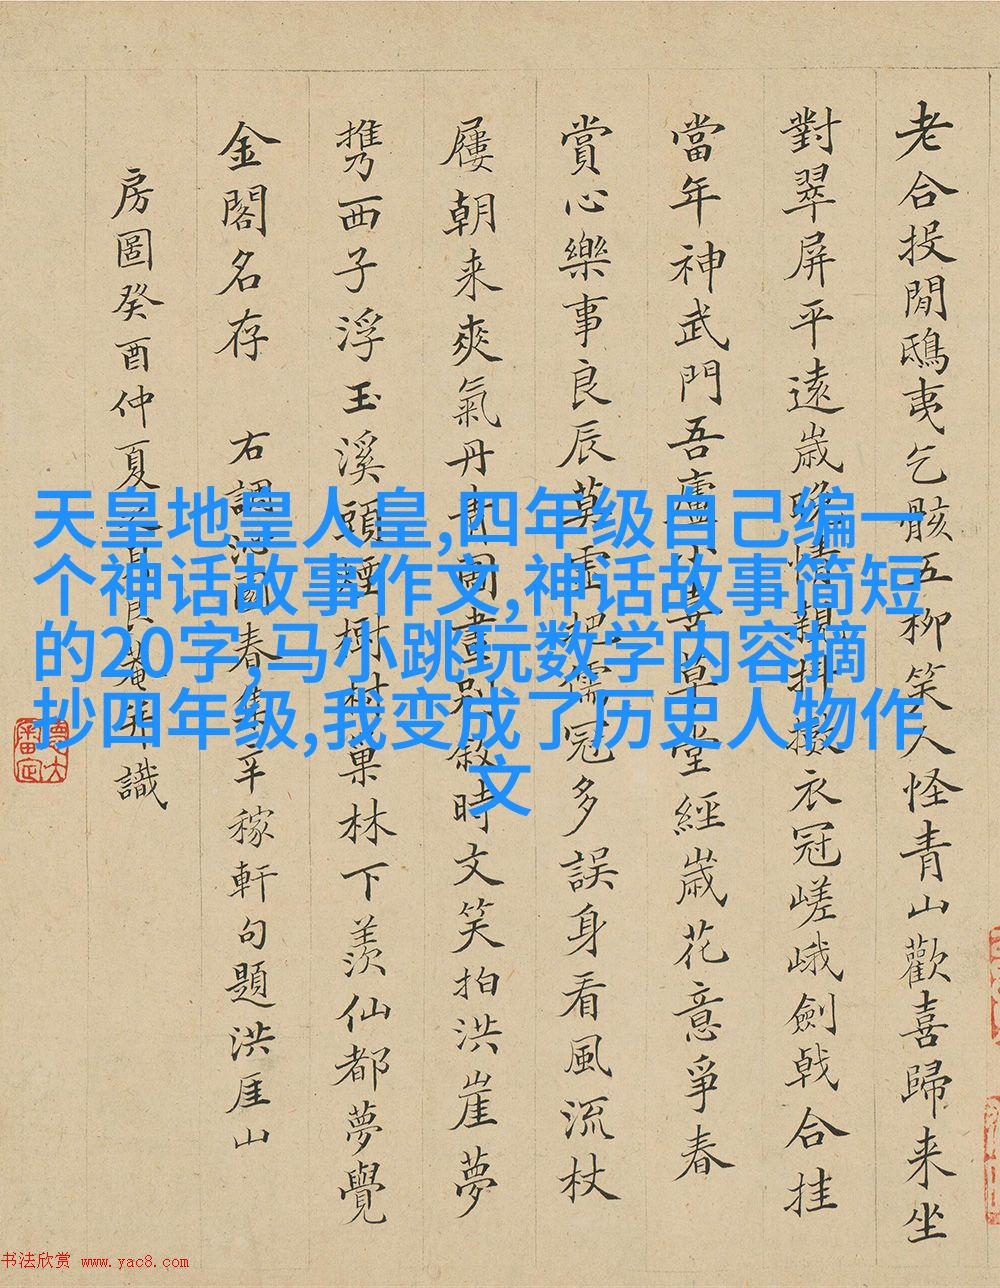 老合投閒鴟夷乞骸五柳笑人怪青山歡喜歸来坐
對翠屏平遠歲晚情親掛衣冠嵯峨劍戟合挂
當年神武門吾廬小著草堂經歲花意爭春
賞心樂事良辰莫虛把儒冠多誤身看風流杖
屨朝来爽氣丹青圖畫別敘時文笑拍洪崖夢
携西子浮玉溪頭煙樹林下羨仙都夢覺
金閣名存 右調沁園春集辛稼軒句題洪厓山
房圖癸酉仲夏識
天皇地皇人皇,四年级自己编一
个神话故事作文,神话故事简短
的20字,马小跳玩数学内容摘
抄四年级,我变成了历史人物作
文
书法欣赏 www.yac8.com